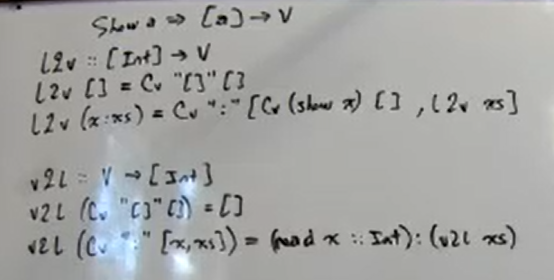 Show a => [a] → V
l2v :: [Int] → V
l2v [] = Cv "[]" []
l2v (x:xs) = Cv ":" [Cv (show x) [] , l2v xs]
v2l :: V → [Int]
v2l (Cv "[]" []) = []
v2l (Cv ":" [x,xs]) = (read x :: Int) : (v2l xs)